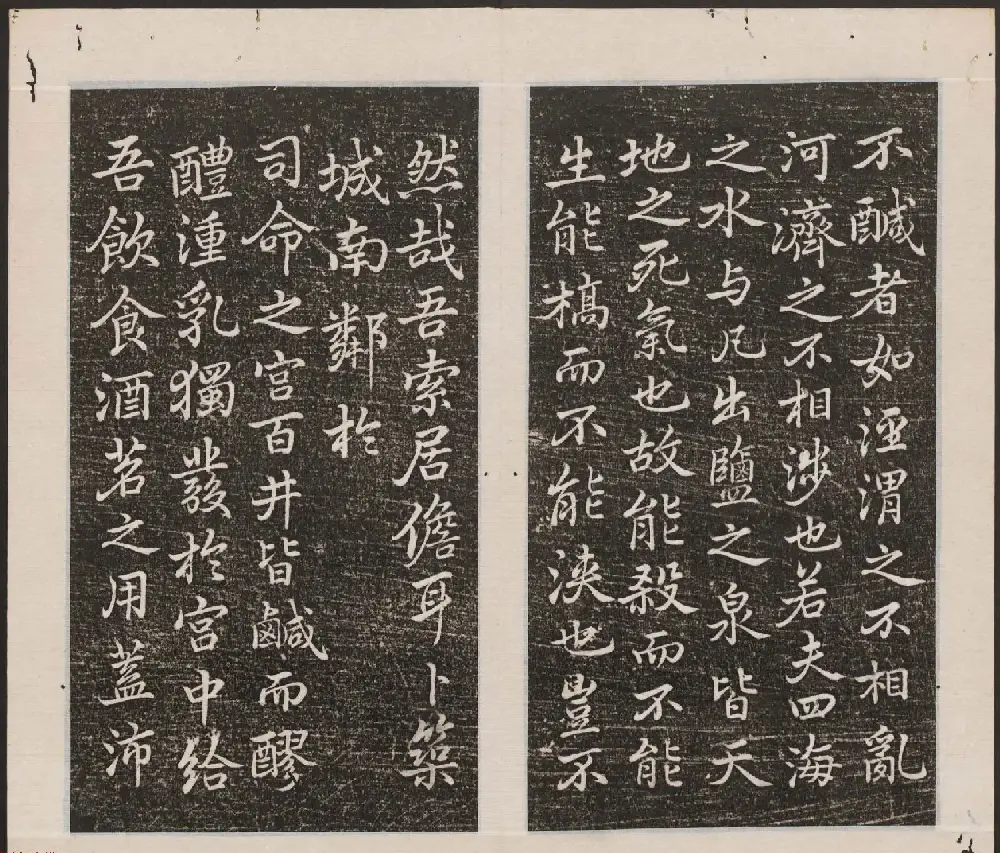 不醎者如涇渭之不相亂
河濟之不相涉也若夫四海
之水与凡出鹽之泉皆天
地之死氣也故能殺而不能
生能槁而不能浹也豈不
然哉吾索居儋耳卜築
城南鄰於
司命之宮百井皆鹹而醪
醴湩乳獨發於宮中給
吾飲食酒茗之用蓋沛